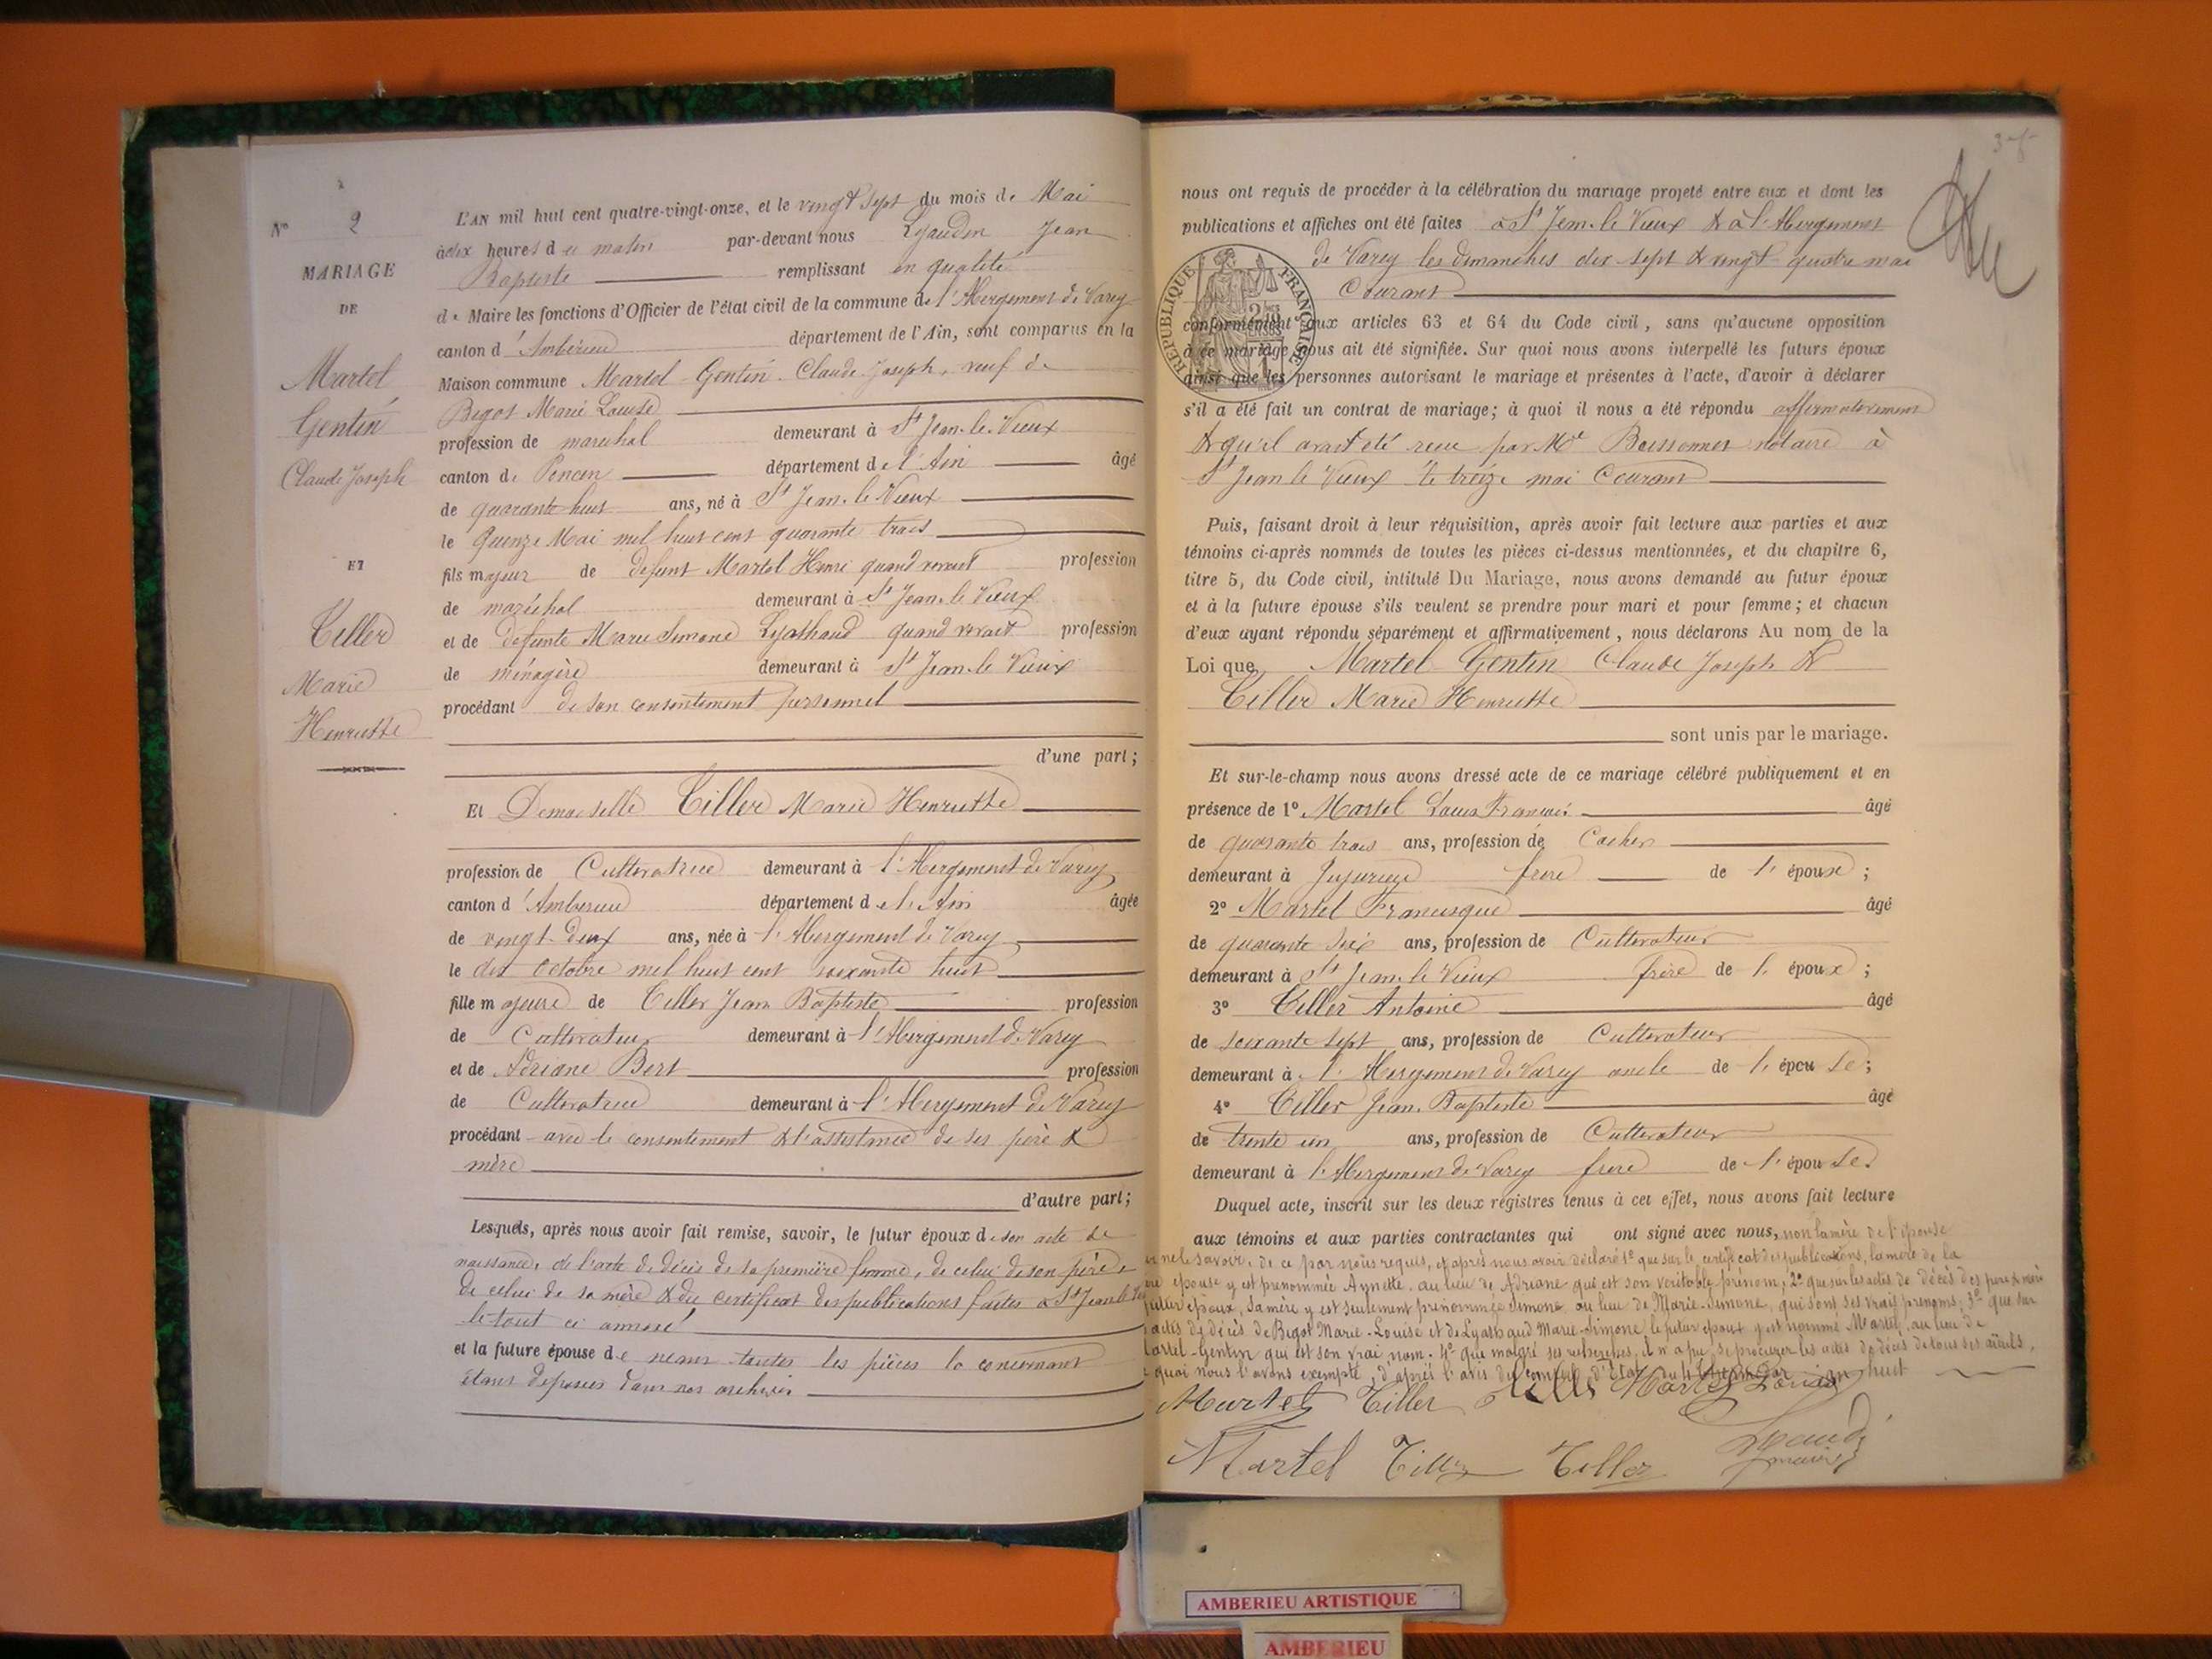 Nº 2
MARIAGE
DE
Martel
Gentin
Claude Joseph
ET
Tiller
Marie
Henriette
L'AN mil huit cent quatre-vingt-onze, et le vingt sept du mois de Mai
à dix heures du matin par-devant nous Lyaudin Jean
Baptiste remplissant en qualité
de Maire les fonctions d'Officier de l'état civil de la commune de l'Abergement de Varey
canton d'Ambérieu département de l'Ain, sont comparus en la
Maison commune Martel-Gentin Claude Joseph, veuf de
Bigot Marie Louise
profession de maréchal demeurant à St Jean-le-Vieux
canton de Poncin département de l'Ain âgé
de quarante huit ans, né à St Jean-le-Vieux
le quinze Mai mil huit cent quarante trois
fils majeur de défunt Martel Henri quand vivait profession
de maréchal demeurant à St Jean-le-Vieux
et de défunte Marie Simone Lyathaud quand vivait profession
de ménagère demeurant à St Jean-le-Vieux
procédant de son consentement personnel
d'une part;
Et Demoiselle Tiller Marie Henriette
profession de Cultivatrice demeurant à l'Abergement de Varey
canton d'Ambérieu département de l'Ain âgée
de vingt-deux ans, née à l'Abergement de Varey
le dix Octobre mil huit cent soixante huit
fille majeure de Tiller Jean Baptiste profession
de Cultivateur demeurant à l'Abergement de Varey
et de Adriane Bert profession
de Cultivatrice demeurant à l'Abergement de Varey
procédant avec le consentement & l'assistance de ses père &
mère
d'autre part;
Lesquels, après nous avoir fait remise, savoir, le futur époux de son acte de
naissance, de l'acte de décès de sa première femme, de celui de son père,
de celui de sa mère & du certificat des publications faites à St Jean le
le tout ci annexé
et la future épouse de néant toutes les pièces la concernant
étant déposées dans nos archives
nous ont requis de procéder à la célébration du mariage projeté entre eux et dont les
publications et affiches ont été faites à St Jean-le-Vieux & à l'Abergement
de Varey les dimanches dix-sept & vingt-quatre mai
Courant
RÉPUBLIQUE FRANÇAISE
conformément aux articles 63 et 64 du Code civil, sans qu'aucune opposition
à ce mariage nous ait été signifiée. Sur quoi nous avons interpellé les futurs époux
ainsi que les personnes autorisant le mariage et présentes à l'acte, d'avoir à déclarer
s'il a été fait un contrat de mariage; à quoi il nous a été répondu affirmativement
& qu'il avait été reçu par Me notaire à
St Jean le Vieux le treize mai Courant
Puis, faisant droit à leur réquisition, après avoir fait lecture aux parties et aux
témoins ci-après nommés de toutes les pièces ci-dessus mentionnées, et du chapitre 6,
titre 5, du Code civil, intitulé Du Mariage, nous avons demandé au futur époux
et à la future épouse s'ils veulent se prendre pour mari et pour femme; et chacun
d'eux ayant répondu séparément et affirmativement, nous déclarons Au nom de la
Loi que Martel Gentin Claude Joseph &
Tiller Marie Henriette
sont unis par le mariage.
Et sur-le-champ nous avons dressé acte de ce mariage célébré publiquement et en
présence de 1º Martel Louis François âgé
de quarante trois ans, profession de Cocher
demeurant à Jujurieux frère de l'époux;
2º Martel Francisque âgé
de quarante six ans, profession de Cultivateur
demeurant à St Jean-le-Vieux frère de l'époux;
3º Tiller Antoine âgé
de soixante sept ans, profession de Cultivateur
demeurant à l'Abergement de Varey oncle de l'épouse;
4º Tiller Jean-Baptiste âgé
de trente un ans, profession de Cultivateur
demeurant à l'Abergement de Varey frère de l'épouse.
Duquel acte, inscrit sur les deux régistres tenus à cet effet, nous avons fait lecture
aux témoins et aux parties contractantes qui ont signé avec nous, non la mère de l'épouse
ne le savoir, de ce par nous requis, et après nous avoir déclaré 1º que sur le certificat des publications, la mère de la
épouse y est prénommée Annette, au lieu de Adriane qui est son véritable prénom; 2º que sur les actes de décès des père & mère
futur époux, sa mère y est seulement prénommée Simone, au lieu de Marie-Simone, qui sont ses vrais prénoms; 3º que sur
actes de décès de Bigot Marie-Louise et de Lyathaud Marie-Simone, le futur époux y est nommé Martel, au lieu de
Martel-Gentin qui est son vrai nom. 4º que malgré ses recherches, il n'a pu se procurer les actes de décès de tous ses aïeuls,
quoi nous l'avons exempté, d'après l'avis du conseil d'État du 4 thermidor an huit
Martel Tiller Martel Louis
Martel Tiller Tiller Lyaudin
maire
AMBERIEU ARTISTIQUE
AMBERIEU